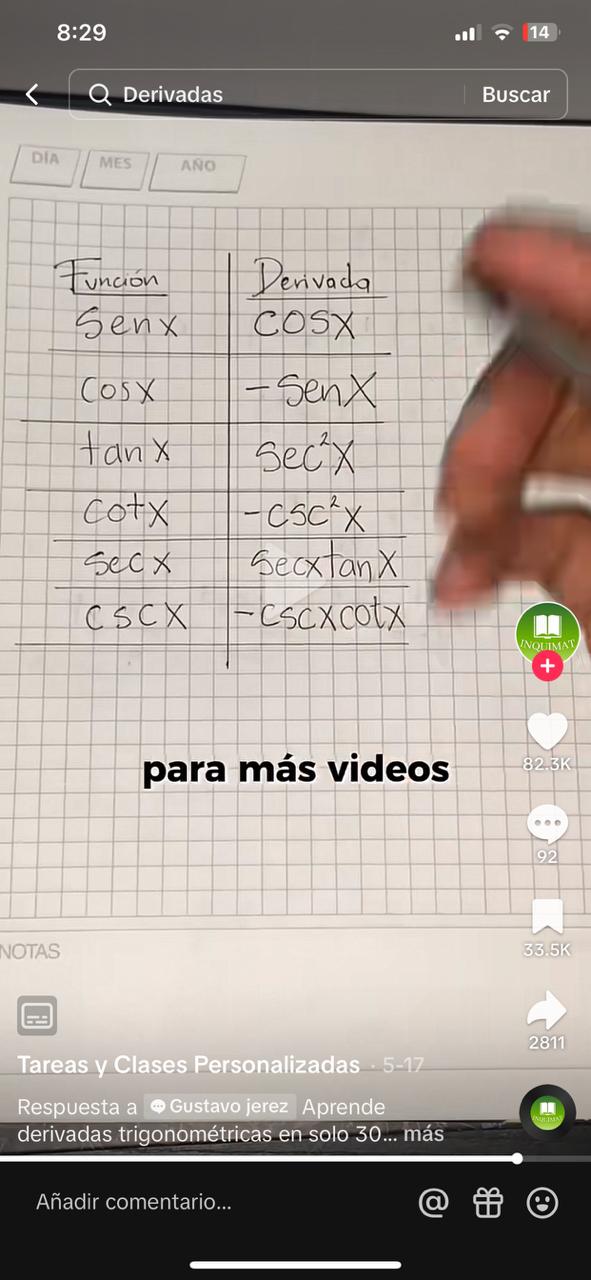 8:29
14
Derivadas Buscar
DÍA MES AÑO
Función Derivada
Senx COSX
Cosx -SenX
tanx Sec²X
Cotx -CSC²X
Secx SecxtanX
CSCX -CSCXCotx
INQUIMAT
para más videos
82.3K
92
33.5K
NOTAS
2811
Tareas y Clases Personalizadas · 5-17
Respuesta a Gustavo jerez Aprende
derivadas trigonométricas en solo 30... más
INQUIMAT
Añadir comentario...